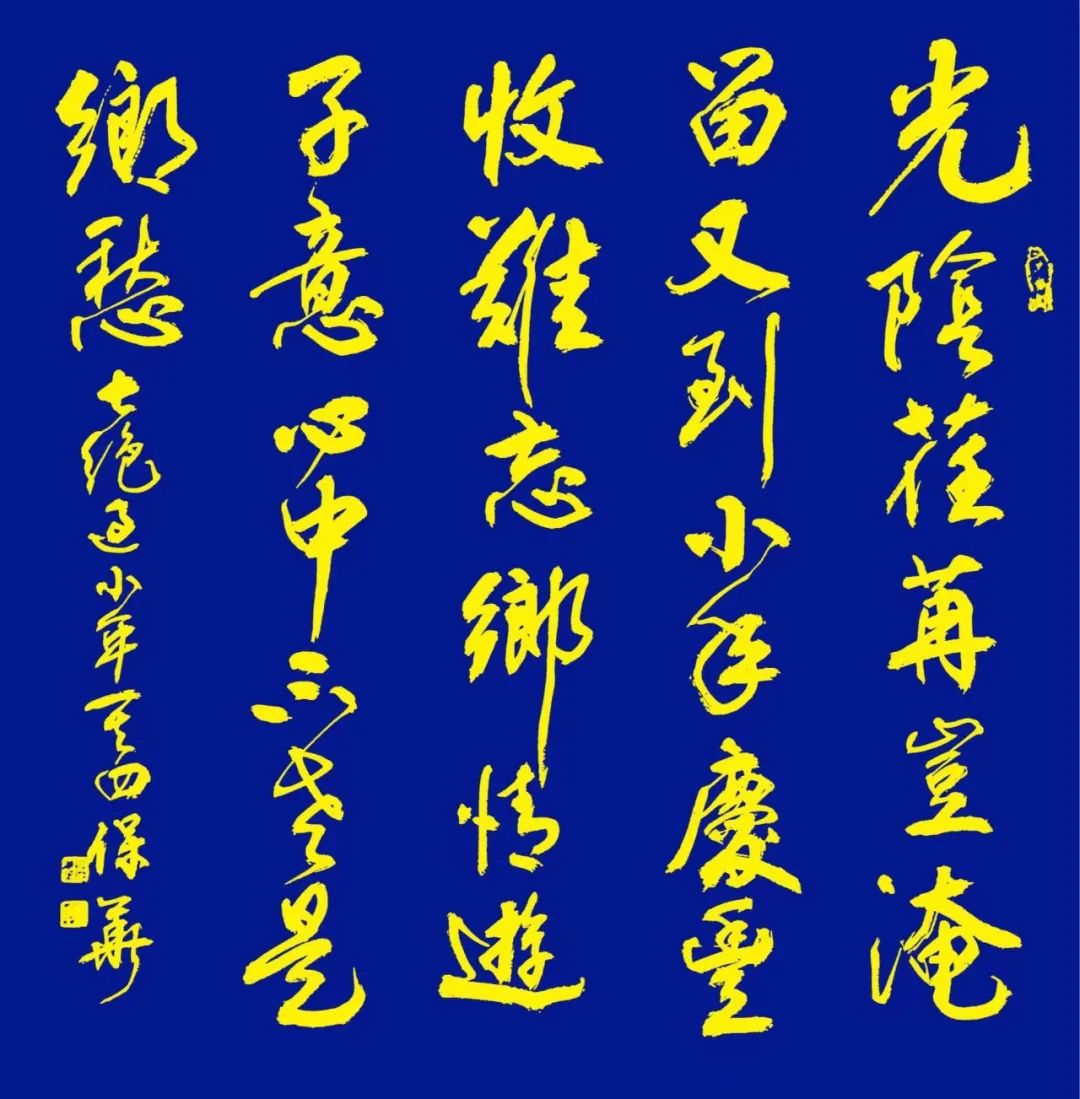 光陰荏苒豈淹
留又到小年慶豐
收難忘鄉情遊
子意心中不老是
鄉愁 七絕過小年其四 保華